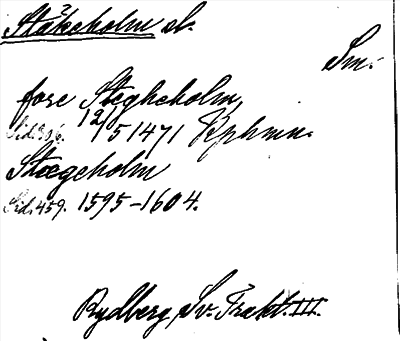 Stäkeholm sl.
Sm.
fore Stegheholm,
Sid. 12/5 1471 Kphmn.
Stægeholm
Sid. 459. 1595-1604.
Rydberg, Sv. Trakt. III.